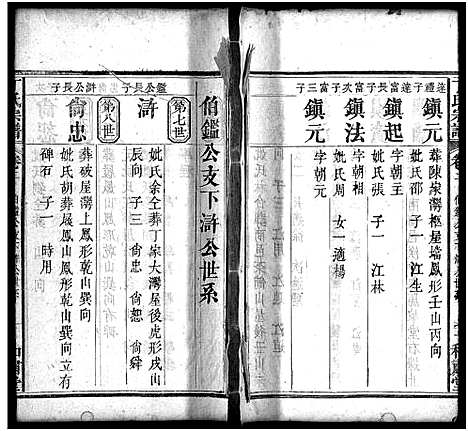 達禮子
鎮元
葬陳家灣樞屋墻鳳形壬山丙向
妣氏 子一 江生
達富長子
鎮起
字朝
妣氏張 子一 江林
富次子
鎮法
字朝
妣氏周 女一適楊
富三子
鎮元
字朝元
伯鑑公支下滸公世系
第七世
鑑公長子
滸
妣氏余仝葬丁家大灣屋後虎形戌山
辰向 子三 尙忠 尙舜
第八世
滸公長子
尙忠
葬破屋灣上鳳形乾山巽向
妣氏胡葬扇鳳山鳳形乾山巽向立有
碑石 子一 時用
氏宗譜